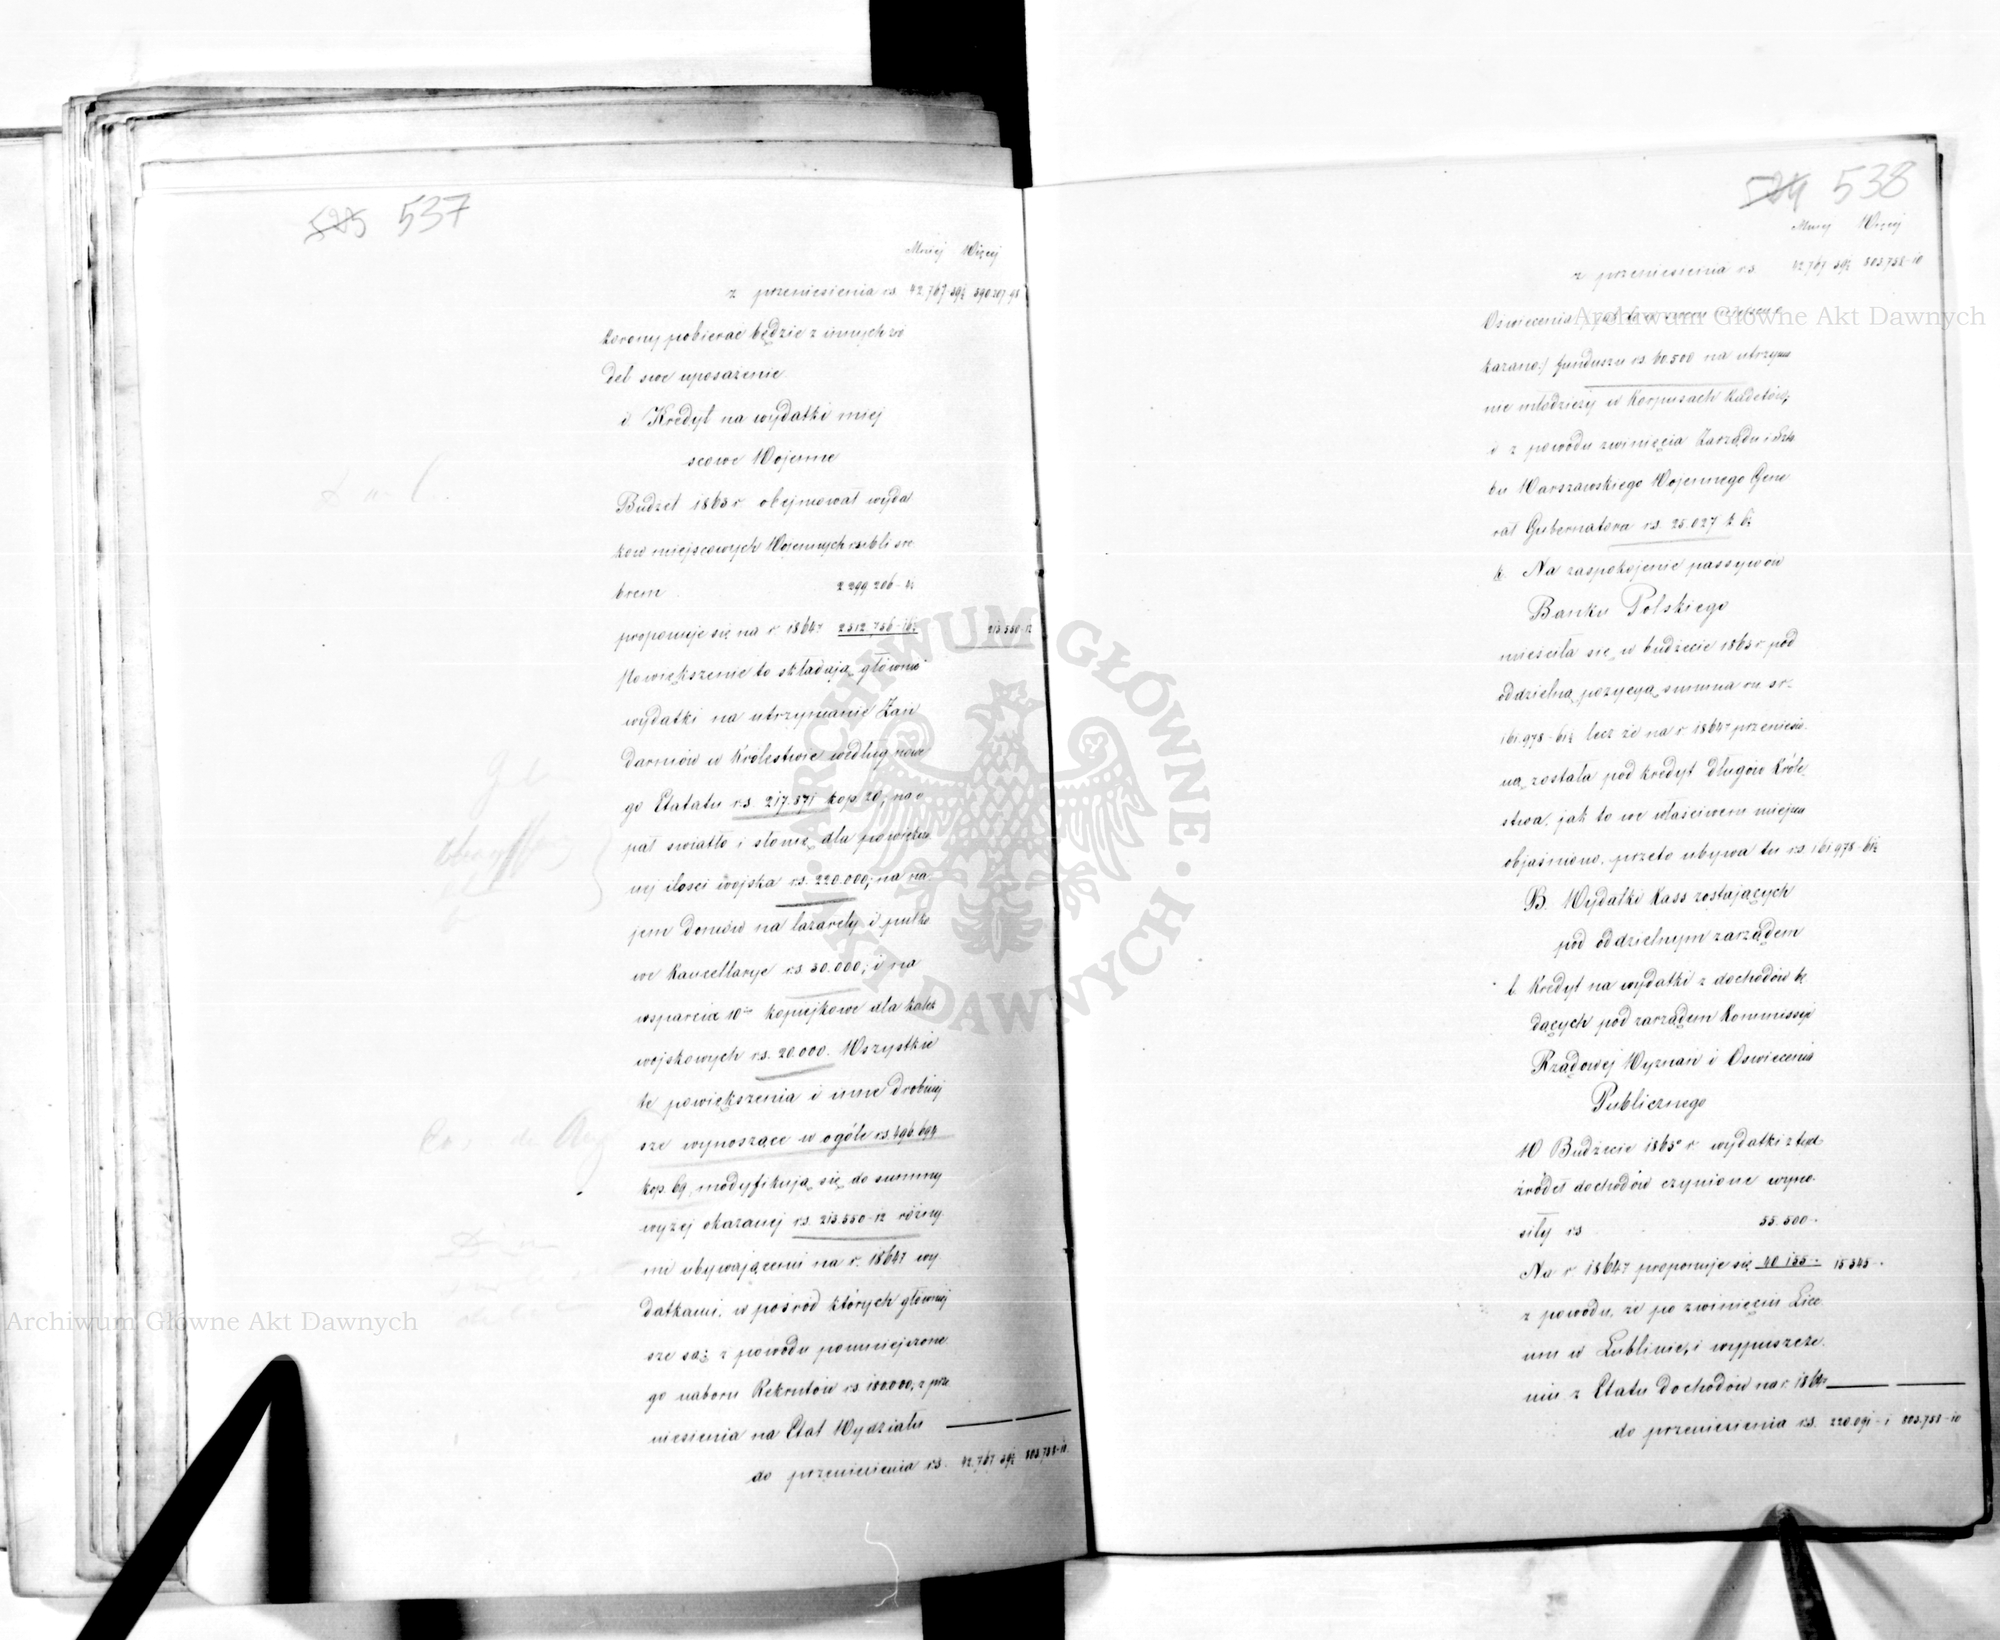 537
Mniej Więcej
z przeniesienia rs. 42.767 39½ 590.207 98
korony pobierać będzie z innych źró
deł swe uposażenie.
i Kredyt na wydatki miej
scowe Wojenne
Budżet 1863 r. obejmował wydat
ków miejscowych Wojennych rubli sre
brem 2 299 206-4½
proponuje się na r. 1864 2512.756-16½ 213.550-12
Powiększenie to składają głównie
wydatki na utrzymanie Żan
darmów w Królestwie według nowe
go Etatatu rs. 217.371 kop 20; na o
pał światło i słomę dla powiększo
nej ilości wojska rs. 220.000; na na
jem domów na lazarety i pułko
we Kancellarye rs 30.000; i na
wsparcia 10cio kopiejkowe dla kalek
wojskowych rs. 20.000. Wszystkie
te powiększenia i inne drobniej
sze wynoszące w ogóle rs. 496.694
kop. 69, modyfikują się do summy
wyżej okazanej rs. 213.550-12 różny
mi ubywającemi na r. 1864 wy
datkami, w pośród których główniej
sze są: z powodu pomniejszone
go naboru Rekrutów rs. 180.000, z prze
niesienia na Etat Wydziału
do przeniesienia rs. 42.767 39½ 803.758-10
538
Mniej Więcej
z przeniesienia rs. 42.767 39½ 803.758-10
Oświecenia
kazano:/ funduszu rs. 60.500 na utrzyma
nie młodzieży w Korpusach Kadetów,
i z powodu zwinięcia Zarządu i Szta
bu Warszawskiego Wojennego Gene
rał Gubernatora rs. 25.027 k 6½
k. Na zaspokojenie passywów
Banku Polskiego
mieściła się w budżecie 1863 r. pod
oddzielną pozycyą summa ru sr.
161.978-61½ lecz że na r. 1864 przeniesio
ną została pod kredyt długów Króle
stwa, jak to we właściwem miejscu
objaśniono, przeto ubywa tu rs. 161.978-61½
B. Wydatki Kass zostających
pod oddzielnym zarządem
b. Kredyt na wydatki z dochodów bę
dących pod zarządem Kommissyi
Rządowej Wyznań i Oświecenia
Publicznego
W Budżecie 1863 r. wydatki z tych
źródeł dochodów czynione wyno
siły rs 55.500-
Na r. 1864 proponuje się 40 155- 15 345-
z powodu, że po zwinięciu Lice
um w Lublinie, i wypuszcze
niu z Etatu dochodów na r. 1864
do przeniesienia rs. 220.091-1 803.758-10
Archiwum Główne Akt Dawnych
Archiwum Główne Akt Dawnych
ARCHIWUM GŁÓWNE AKT DAWNYCH